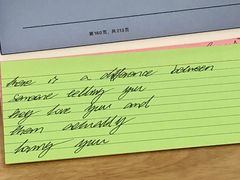 第160页,共213页
there is a difference between
someone telling you
they love you and
them actually
loving you